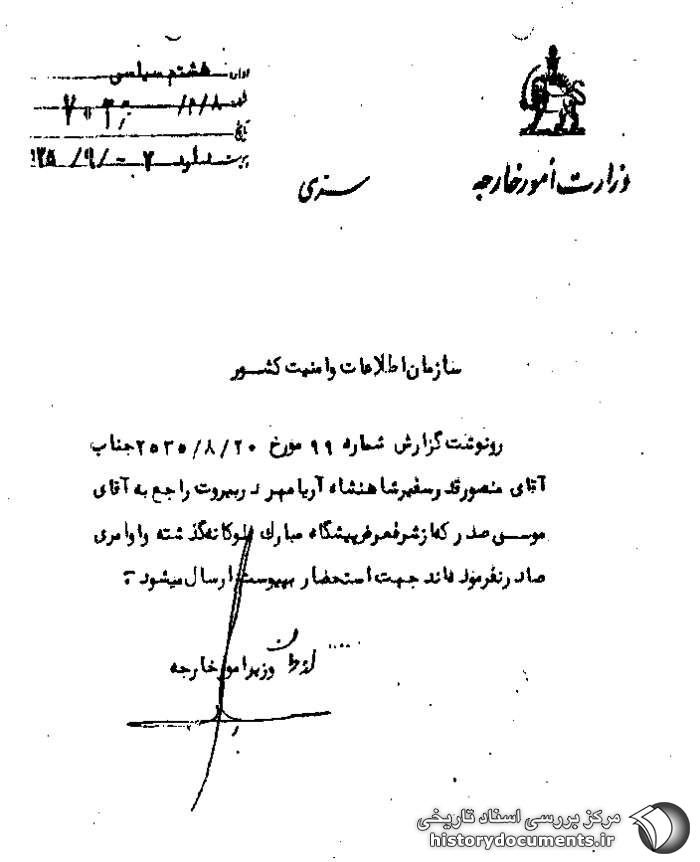 اداره هشتم سیاسی
شماره
تاریخ
پیوست
وزارت امور خارجه
سری
سازمان اطلاعات وامنیت کشور
رونوشت گزارش شماره ۹۹ مورخ ۲۵۳۵/۸/۲۰ جناب
آقای منصورقدر سفیرشاهنشاه آریامهر در بیروت راجع به آقای
موسی صدر که از شرفعرض پیشگاه مبارك ملوکانه گذشته و اوامری
صادر نفرموده اند جهت استحضار بپیوست ارسال میشود
از طرف وزیر امور خارجه
مرکز بررسی اسناد تاریخی
historydocuments.ir